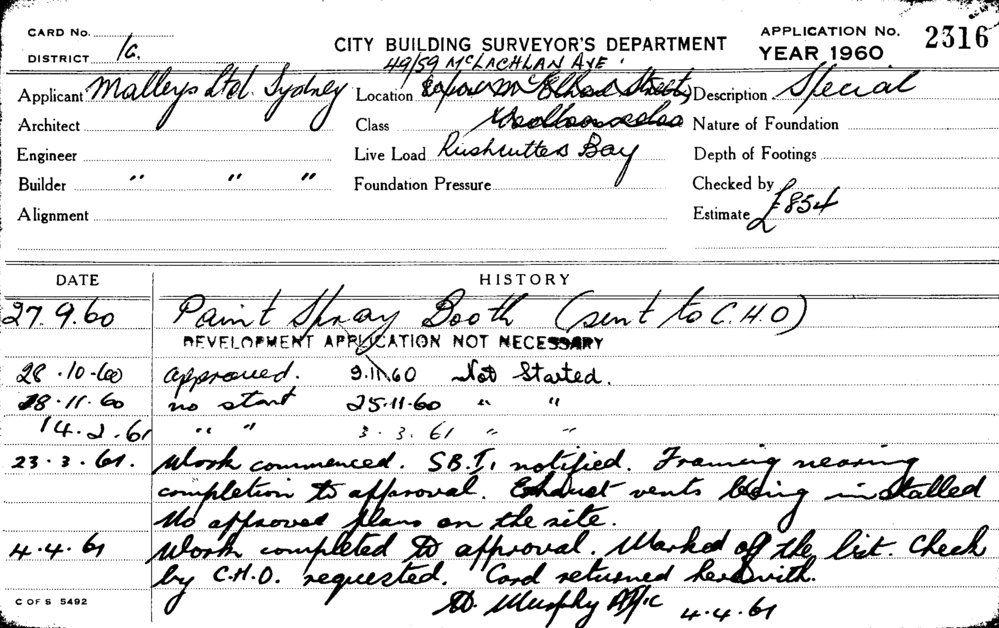 CARD No.
DISTRICT 1c.
CITY BUILDING SURVEYOR'S DEPARTMENT
APPLICATION No. 2316
YEAR 1960
49/59 McLACHLAN AVE.
Applicant Malleys Ltd. Sydney Location Street, Description Special
Architect Class Nature of Foundation
Engineer Live Load Rushcutters Bay Depth of Footings
Builder " " " Foundation Pressure Checked by
Alignment Estimate £854
DATE HISTORY
27.9.60 Paint Spray Booth (sent to C.H.O)
DEVELOPMENT APPLICATION NOT NECESSARY
28.10.60 approved. 9.11.60 Not Started.
18.11.60 no start 25.11.60 " "
14.2.61 " " 3.3.61 " "
23.3.61. Work commenced. S.B.I. notified. Framing nearing
completion to approval. Exhaust vents being installed
No approved plans on the site.
4.4.61 Work completed to approval. Marked off the list. Check
by C.H.O. requested. Card returned herewith.
Murphy 4.4.61
C OF S 5492